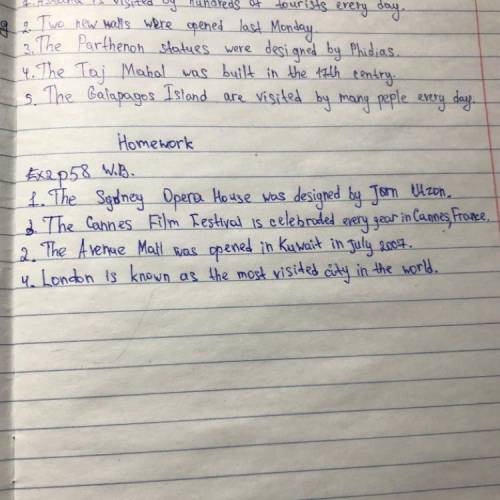 1. Astana is visited by hundreds of tourists every day.
2. Two new malls were opened last Monday
3. The Parthenon statues were designed by Phidias.
4. The Taj Mahal was built in the 17th centry.
5. The Galapagos Island are visited by many peple every day.
Homework
Ex2 p58 W.B.
1. The Sydney Opera House was designed by Jørn Utzon.
d. The Cannes Film Festival is celebrated every year in Cannes, France.
2. The Avenue Mall was opened in Kuwait in July 2007.
4. London is known as the most visited city in the world.